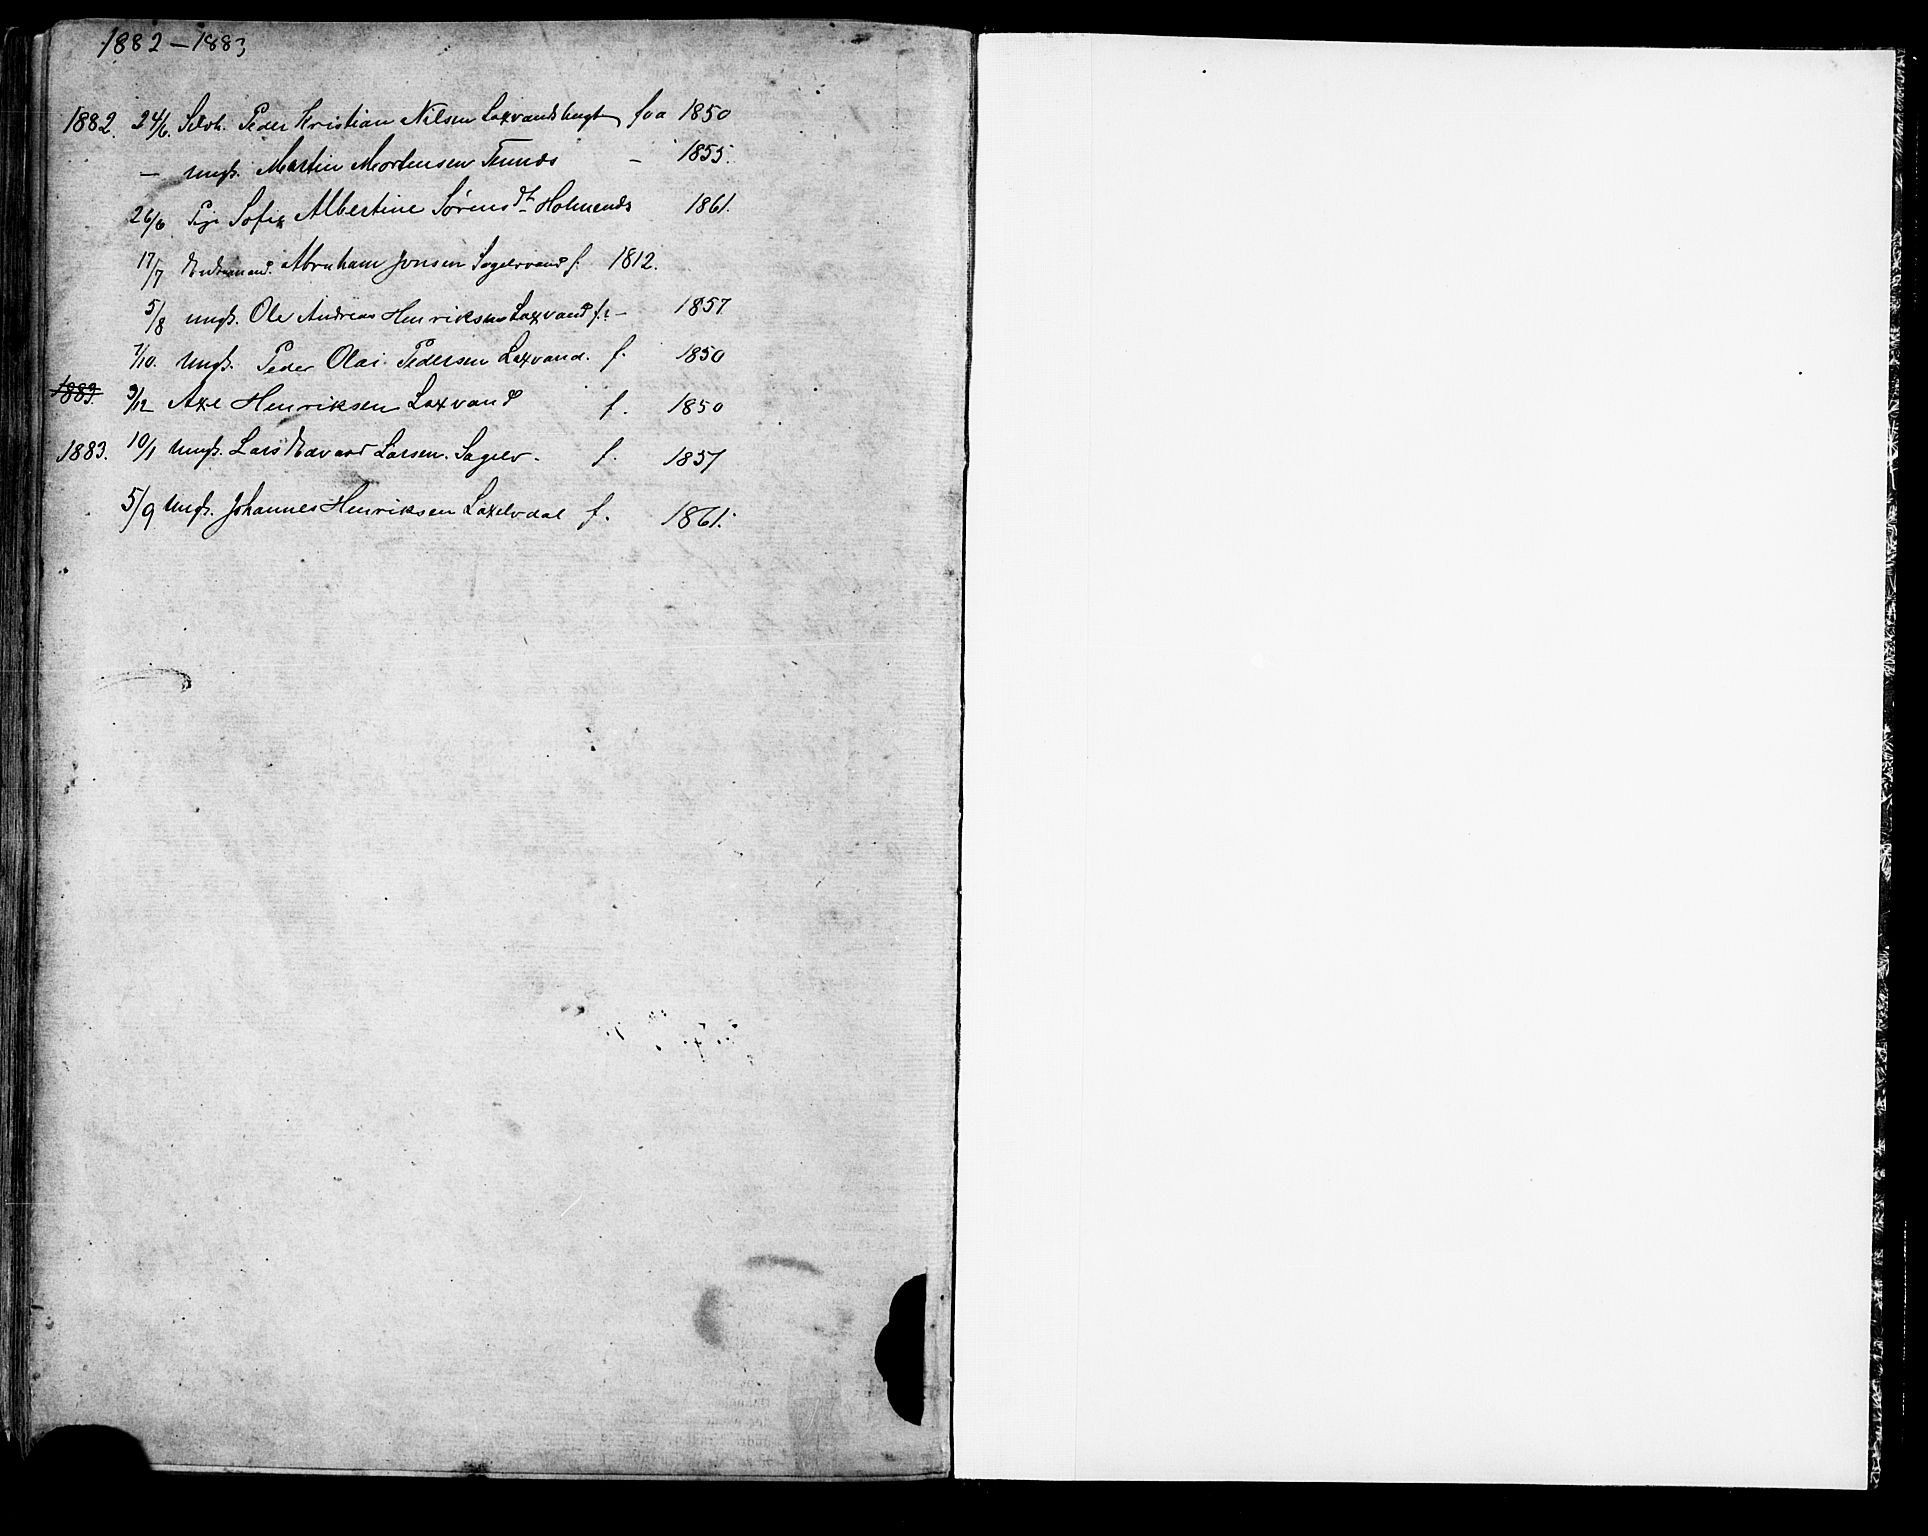 1882 – 1883
1882. 24/6 Selvh. Peder Kristian Nilsen Laxvandbugt fra 1850
— Ungk. Martin Mortensen Tennes – 1855.
26/6 Pige Sofie Albertine Sørensdt Holmenes 1861.
17/7 Enkemand. Abraham Jonsen Sagelvvand f. 1812.
5/8 Ungk. Ole Andreas Henriksen Laxvand f. – 1857
7/10. Ungk. Peder Olai Pedersen Laxvand. f. 1850
1883. 3/12 Axel Henriksen Laxvand f. 1850
1883. 10/1 Ungk. Lars Edvard Larsen. Sagelv. f. 1857
5/9 Ungk. Johannes Henriksen Laxelvdal f. 1861.